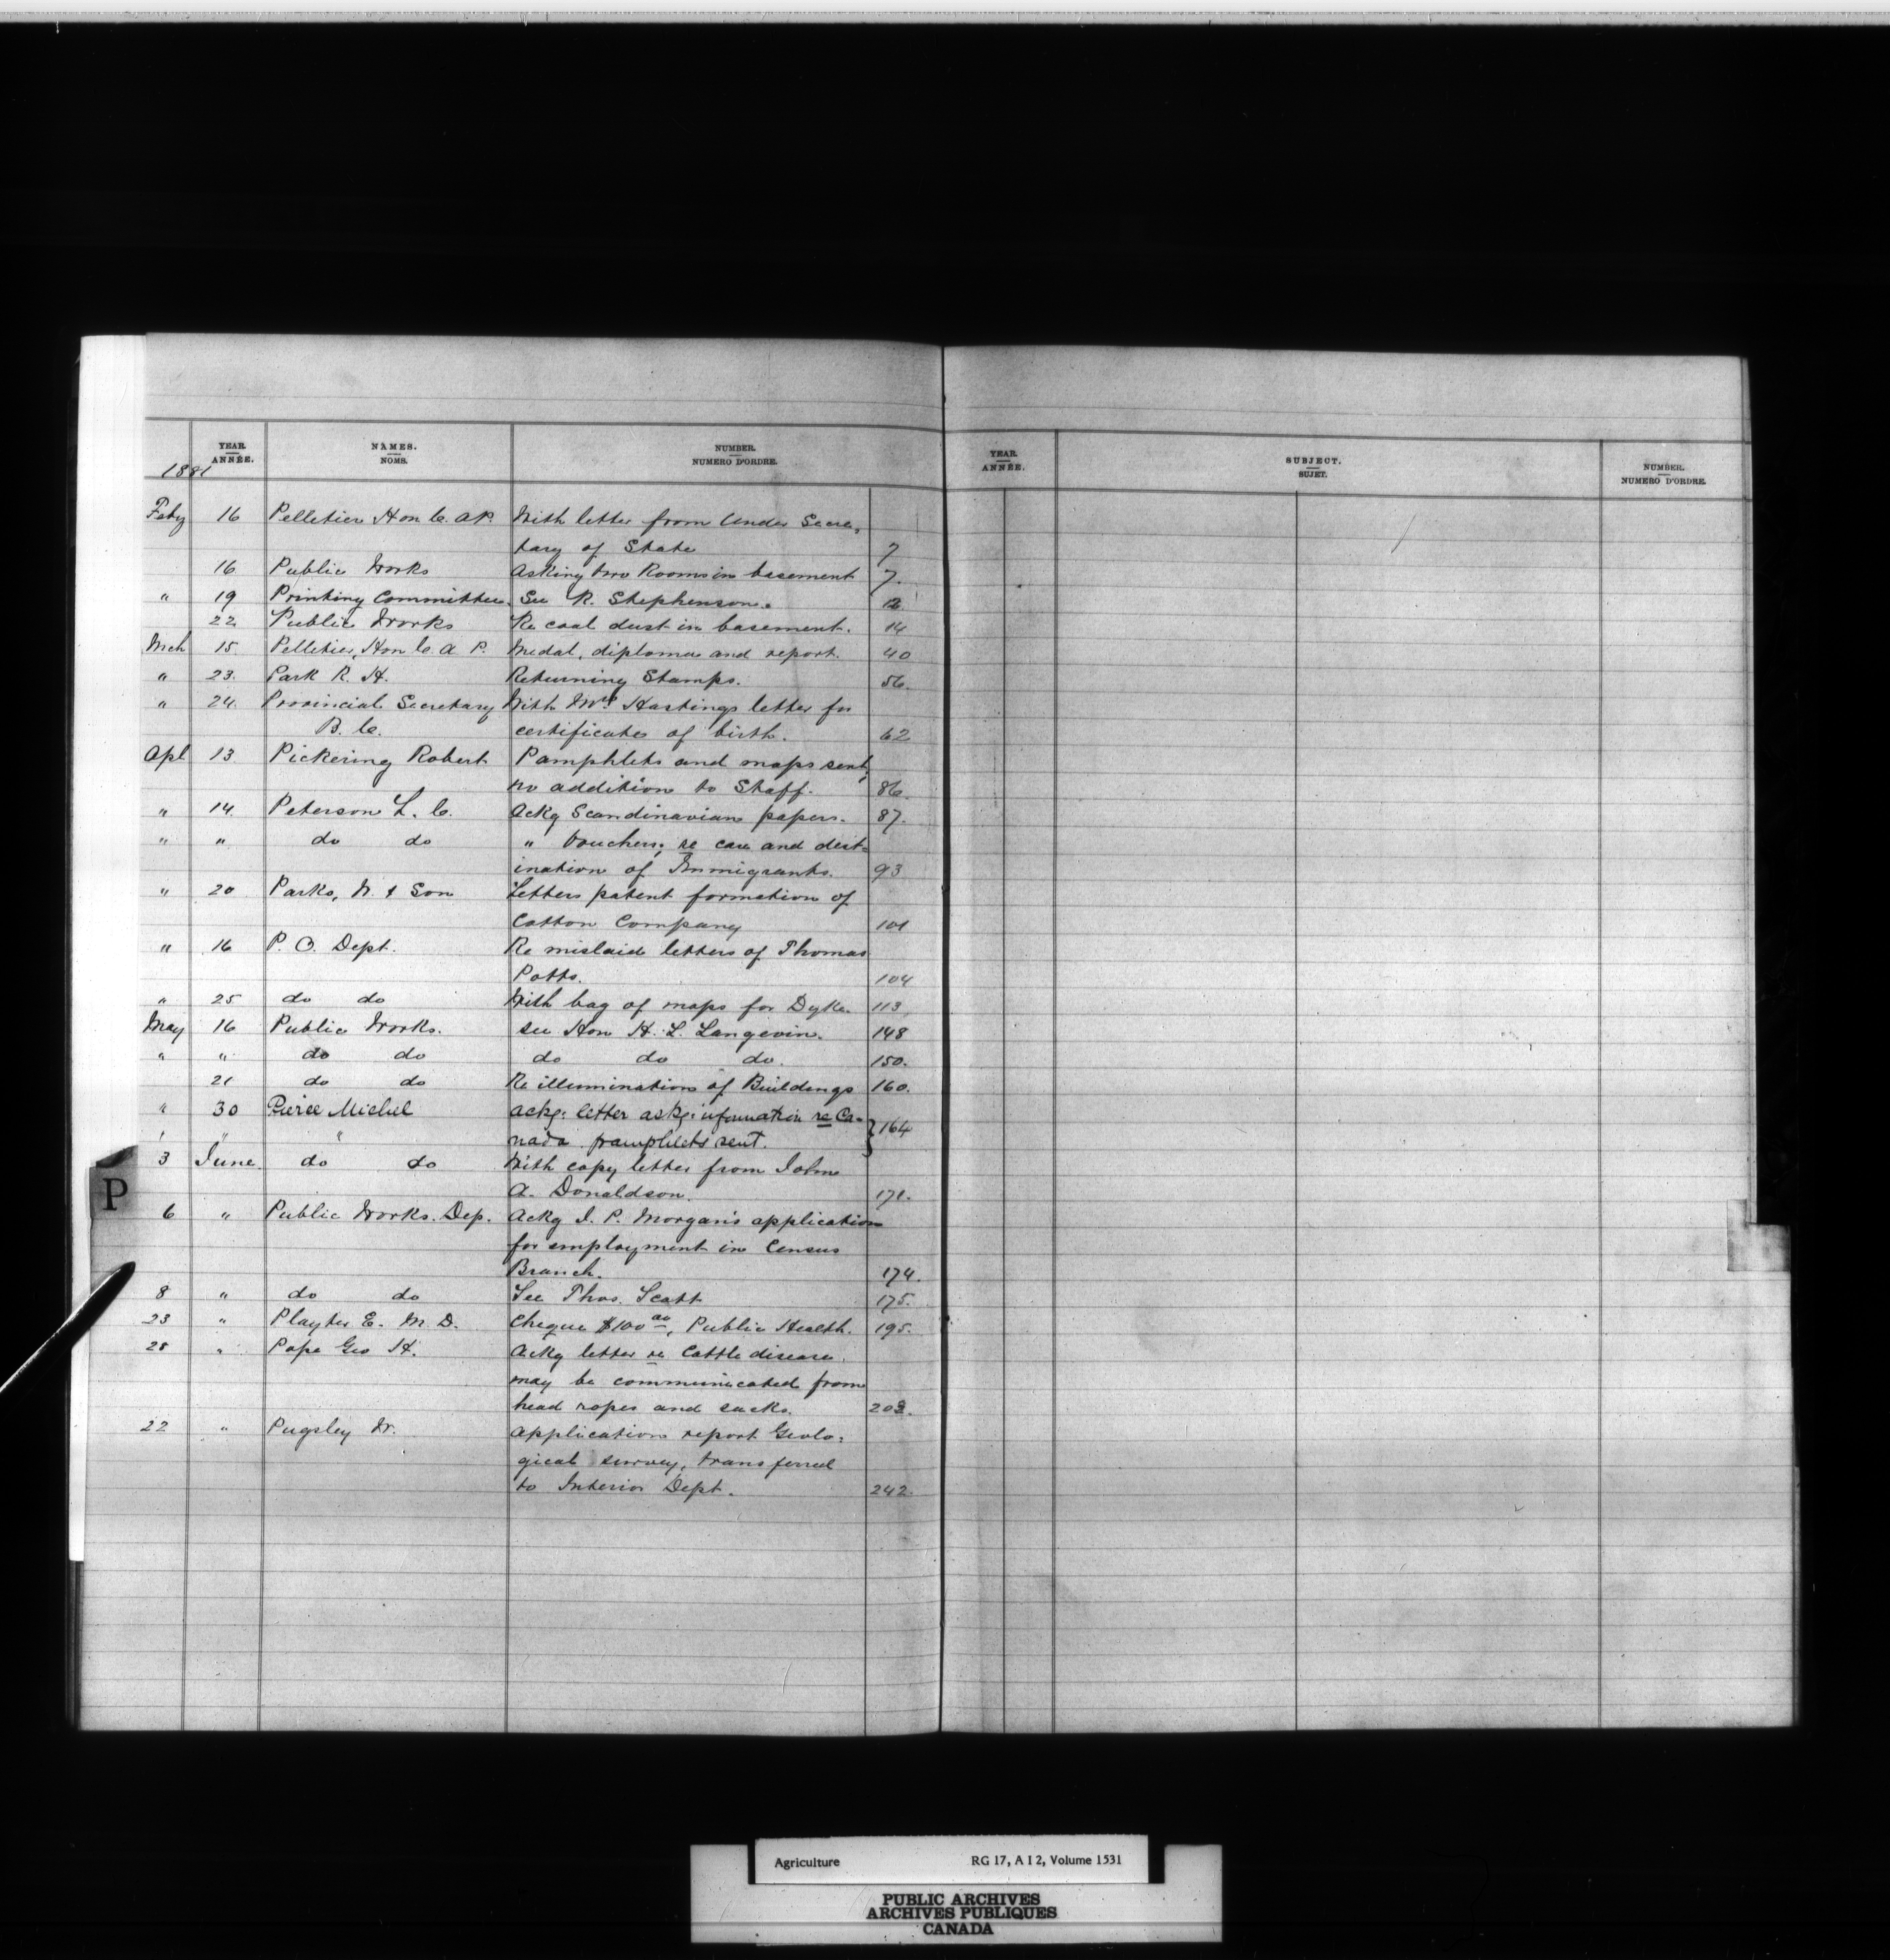 YEAR. ANNÉE. NAMES. NOMS. NUMBER. NUMERO D'ORDRE.
1881
Feby 16 Pelletier Hon C. A P. With letter from Under Secre-
tary of State 7
16 Public Works Asking two Rooms in basement 7.
" 19 Printing Committee. See R. Stephenson. 12
22 Public Works Re coal dust in basement. 14
Mch 15 Pelletier, Hon C A P. Medal, diploma and report. 40
" 23. Park R. H. Returning Stamps. 56.
" 24. Provincial Secretary With Mrs Hastings letter for
B. C. certificates of birth. 62
Apl 13 Pickering Robert Pamphlets and maps sent,
no addition to Staff. 86.
" 14. Peterson L. C. Ackg Scandinavian papers. 87.
" " do do " Vouchers, re care and dest-
ination of Immigrants. 93
" 20 Parks, W. & Son Letters patent formation of
Cotton Company 101
" 16 P. O. Dept. Re mislaid letters of Thomas
Potts. 104
" 25 do do With bag of maps for Dyke. 113
May 16 Public Works. see Hon H. L. Langevin. 148
" " do do do do do. 150.
21 do do Re illumination of Buildings 160.
" 30 Pierce Michel ackg: letter askg: information re Ca-
" " " nada. pamphlets sent. } 164
3 June do do With copy letter from John
A. Donaldson. 171.
6 " Public Works. Dep. Ackg J. P. Morgan's application
for employment in Census
Branch. 174.
8 " do do See Thos. Scott 175.
23 " Playter E. M. D. Cheque $100 00, Public Health. 195.
25 " Pope Geo H. Ackg letter re Cattle disease
may be communicated from
head ropes and sacks. 203.
22 " Pugsley W. Application report Geolo-
gical survey, transferred
to Interior Dept. 242.
P
YEAR. ANNÉE. SUBJECT. SUJET. NUMBER. NUMERO D'ORDRE.
Agriculture RG 17, A I 2, Volume 1531
PUBLIC ARCHIVES
ARCHIVES PUBLIQUES
CANADA